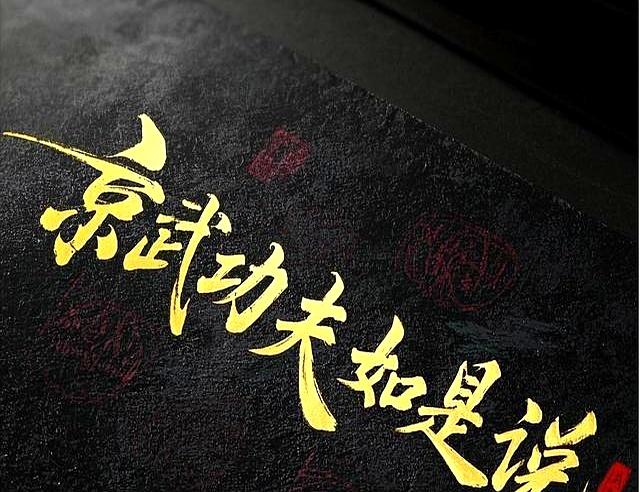 京武功夫如是说